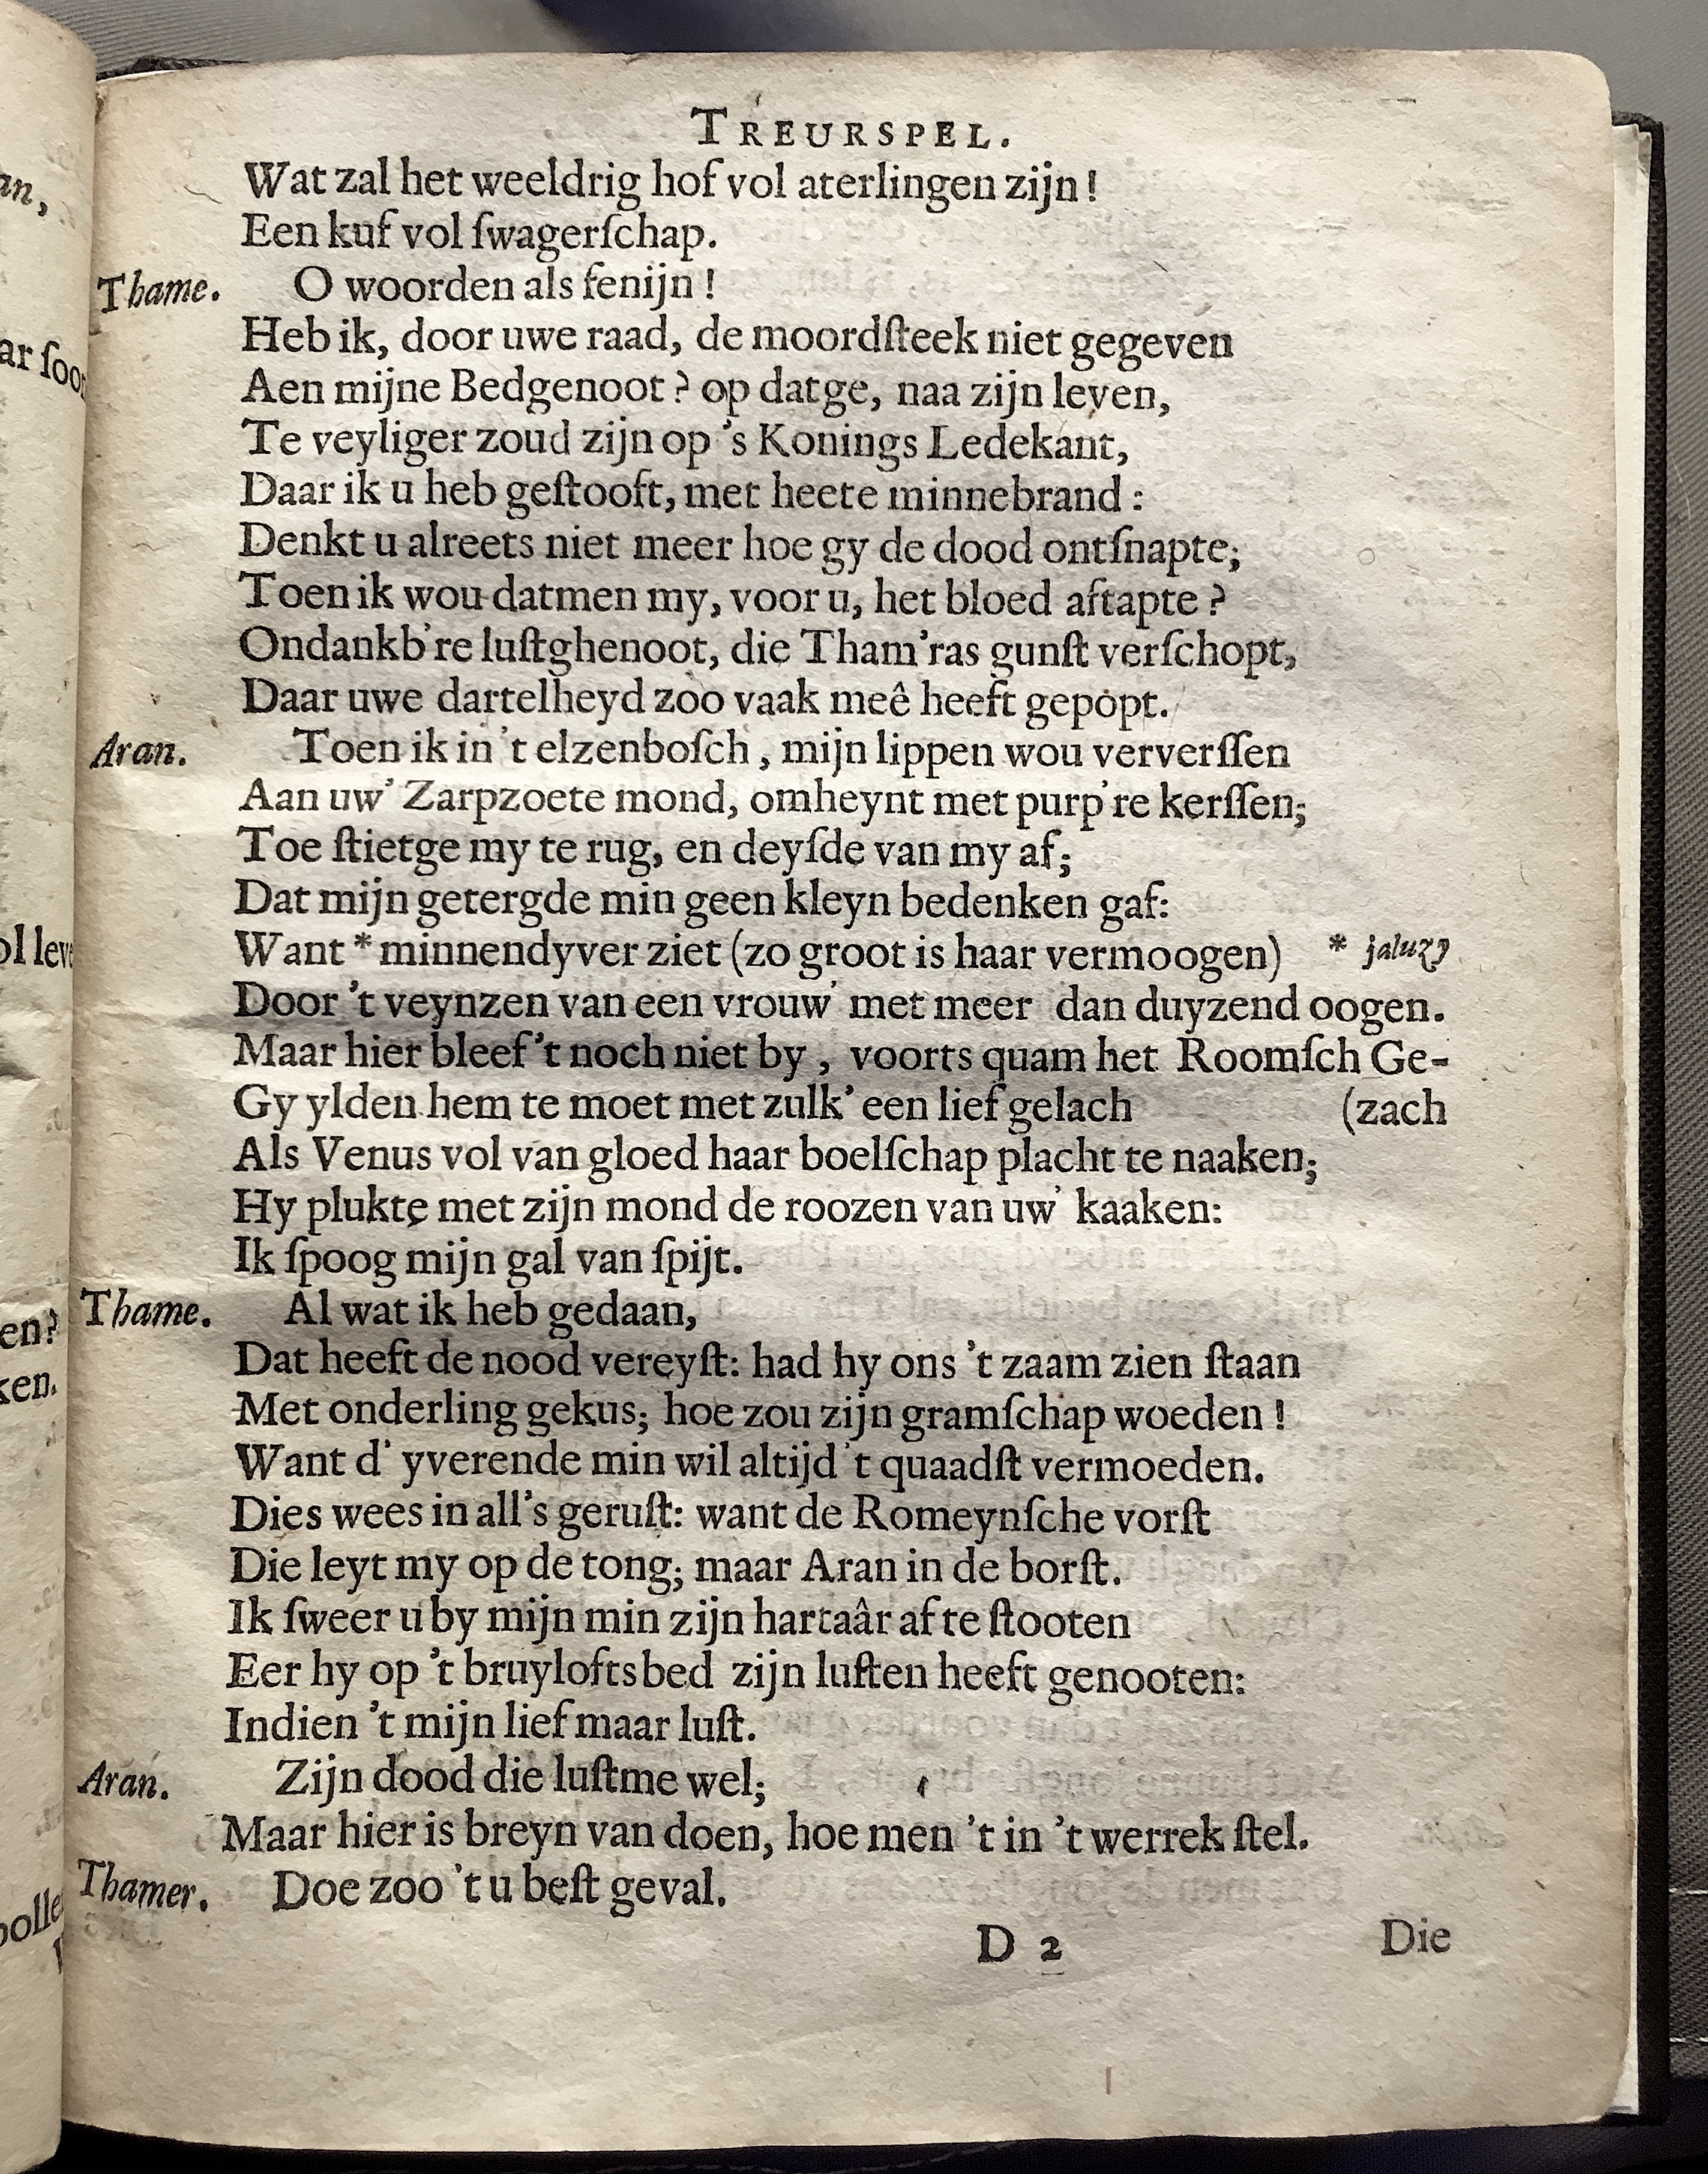 TREURSPEL.
Wat zal het weeldrig hof vol aterlingen zijn!
Een kuf vol ſwagerſchap.
Thame. O woorden als fenijn!
Heb ik, door uwe raad, de moordſteek niet gegeven
Aen mijne Bedgenoot? op datge, naa zijn leven,
Te veyliger zoud zijn op 's Konings Ledekant,
Daar ik u heb geſtooft, met heete minnebrand:
Denkt u alreets niet meer hoe gy de dood ontſnapte;
Toen ik wou datmen my, voor u, het bloed aftapte?
Ondankb're luſtghenoot, die Tham'ras gunſt verſchopt,
Daar uwe dartelheyd zoo vaak meê heeft gepopt.
Aran. Toen ik in 't elzenboſch, mijn lippen wou ververſſen
Aan uw' Zarpzoete mond, omheynt met purp're kerſſen;
Toe ſtietge my te rug, en deyſde van my af;
Dat mijn getergde min geen kleyn bedenken gaf:
Want * minnendyver ziet (zo groot is haar vermoogen) * jaluzy
Door 't veynzen van een vrouw' met meer dan duyzend oogen.
Maar hier bleef 't noch niet by, voorts quam het Roomſch Ge-
Gy ylden hem te moet met zulk' een lief gelach (zach
Als Venus vol van gloed haar boelſchap placht te naaken;
Hy plukte met zijn mond de roozen van uw' kaaken:
Ik ſpoog mijn gal van ſpijt.
Thame. Al wat ik heb gedaan,
Dat heeft de nood vereyſt: had hy ons 't zaam zien ſtaan
Met onderling gekus; hoe zou zijn gramſchap woeden!
Want d' yverende min wil altijd 't quaadſt vermoeden.
Dies wees in all's geruſt: want de Romeynſche vorſt
Die leyt my op de tong; maar Aran in de borſt.
Ik ſweer u by mijn min zijn hartaâr af te ſtooten
Eer hy op 't bruyloftsbed zijn luſten heeft genooten:
Indien 't mijn lief maar luſt.
Aran. Zijn dood die luſtme wel;
Maar hier is breyn van doen, hoe men 't in 't werrek ſtel.
Thamer. Doe zoo 't u beſt geval.
D 2 Die